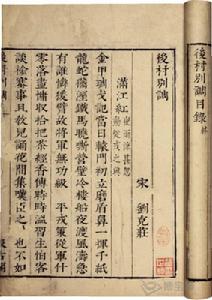 後村別調目錄
後村別調
宋 劉克莊
滿江紅 夜雨涼甚忽動從戎之興
金甲琱戈記當日轅門初立磨盾鼻一揮千紙
龍蛇猶溼鐵馬曉嘶營壁冷樓船夜渡風濤急
有誰憐猿臂故將軍無功級 平戎策從軍什
零落盡慵收拾把茶經香傳時時溫習生怕客
談榆塞事且敎兒誦花間集嘆臣之 也不如
後村別調